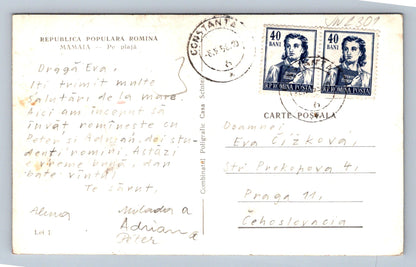 REPUBLICA POPULARA ROMINA
MAMAIA — Pe plajă
Dragă Eva,
Iți trimit multe
salutări de la mare.
Aici am început să
învăț românește cu
Peter și Adrian, doi stu-
denți romini. Astăzi
e vreme bună, dar
bate vîntul
Te sărut,
Alena
Adriana
Péter
Lei 1
Combinatul Poligrafic Casa Scînteii
CONSTANTA
40
BANI
40
BANI
R.P. ROMINA POSTA
R.P. ROMINA POSTA
CARTE POȘTALĂ
Doamnei
Eva Čížková,
Str. Prokopova 4,
Praga 11,
Čehoslovacia